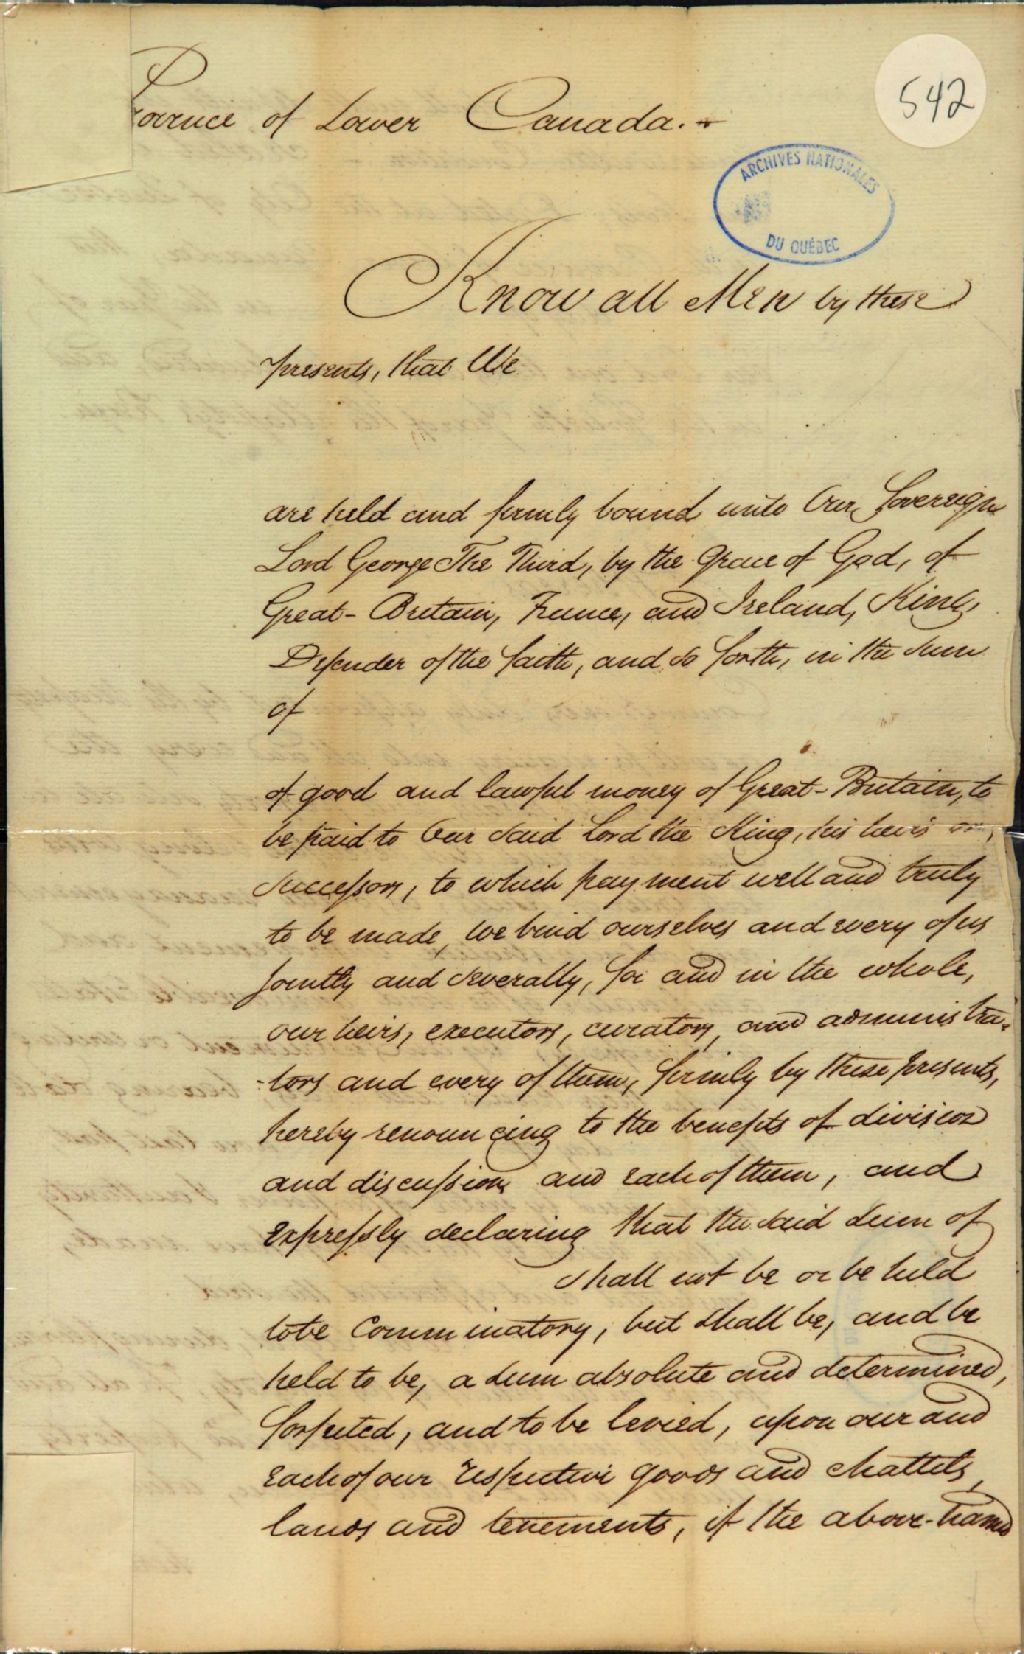 Province of Lower Canada.
542
ARCHIVES NATIONALES
DU QUÉBEC
Know all Men by these
presents, that We
are held and firmly bound unto Our Sovereign
Lord George The Third, by the Grace of God, of
Great-Britain, France, and Ireland, King,
Defender of the faith, and so forth, in the sum
of
of good and lawful money of Great-Britain, to
be paid to Our said Lord the King, his heirs
Successors, to which payment well and truly
to be made, we bind ourselves and every of us
jointly and severally, for and in the whole,
our heirs, executors, curators, and administra-
-tors and every of them, firmly by these presents,
hereby renouncing to the benefits of division
and discussion and each of them, and
expressly declaring that the said sum of
shall not be or be held
to be Comminatory, but shall be, and be
held to be, a sum absolute and determined,
forfeited, and to be levied, upon our and
each of our respective goods and chattels,
lands and tenements, if the above-named